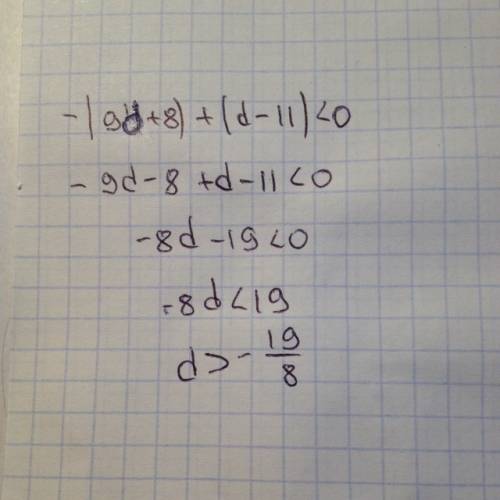 -(9d+8)+(d-11)<0
-9d-8+d-11<0
-8d-19<0
-8d<19
d>-19/8